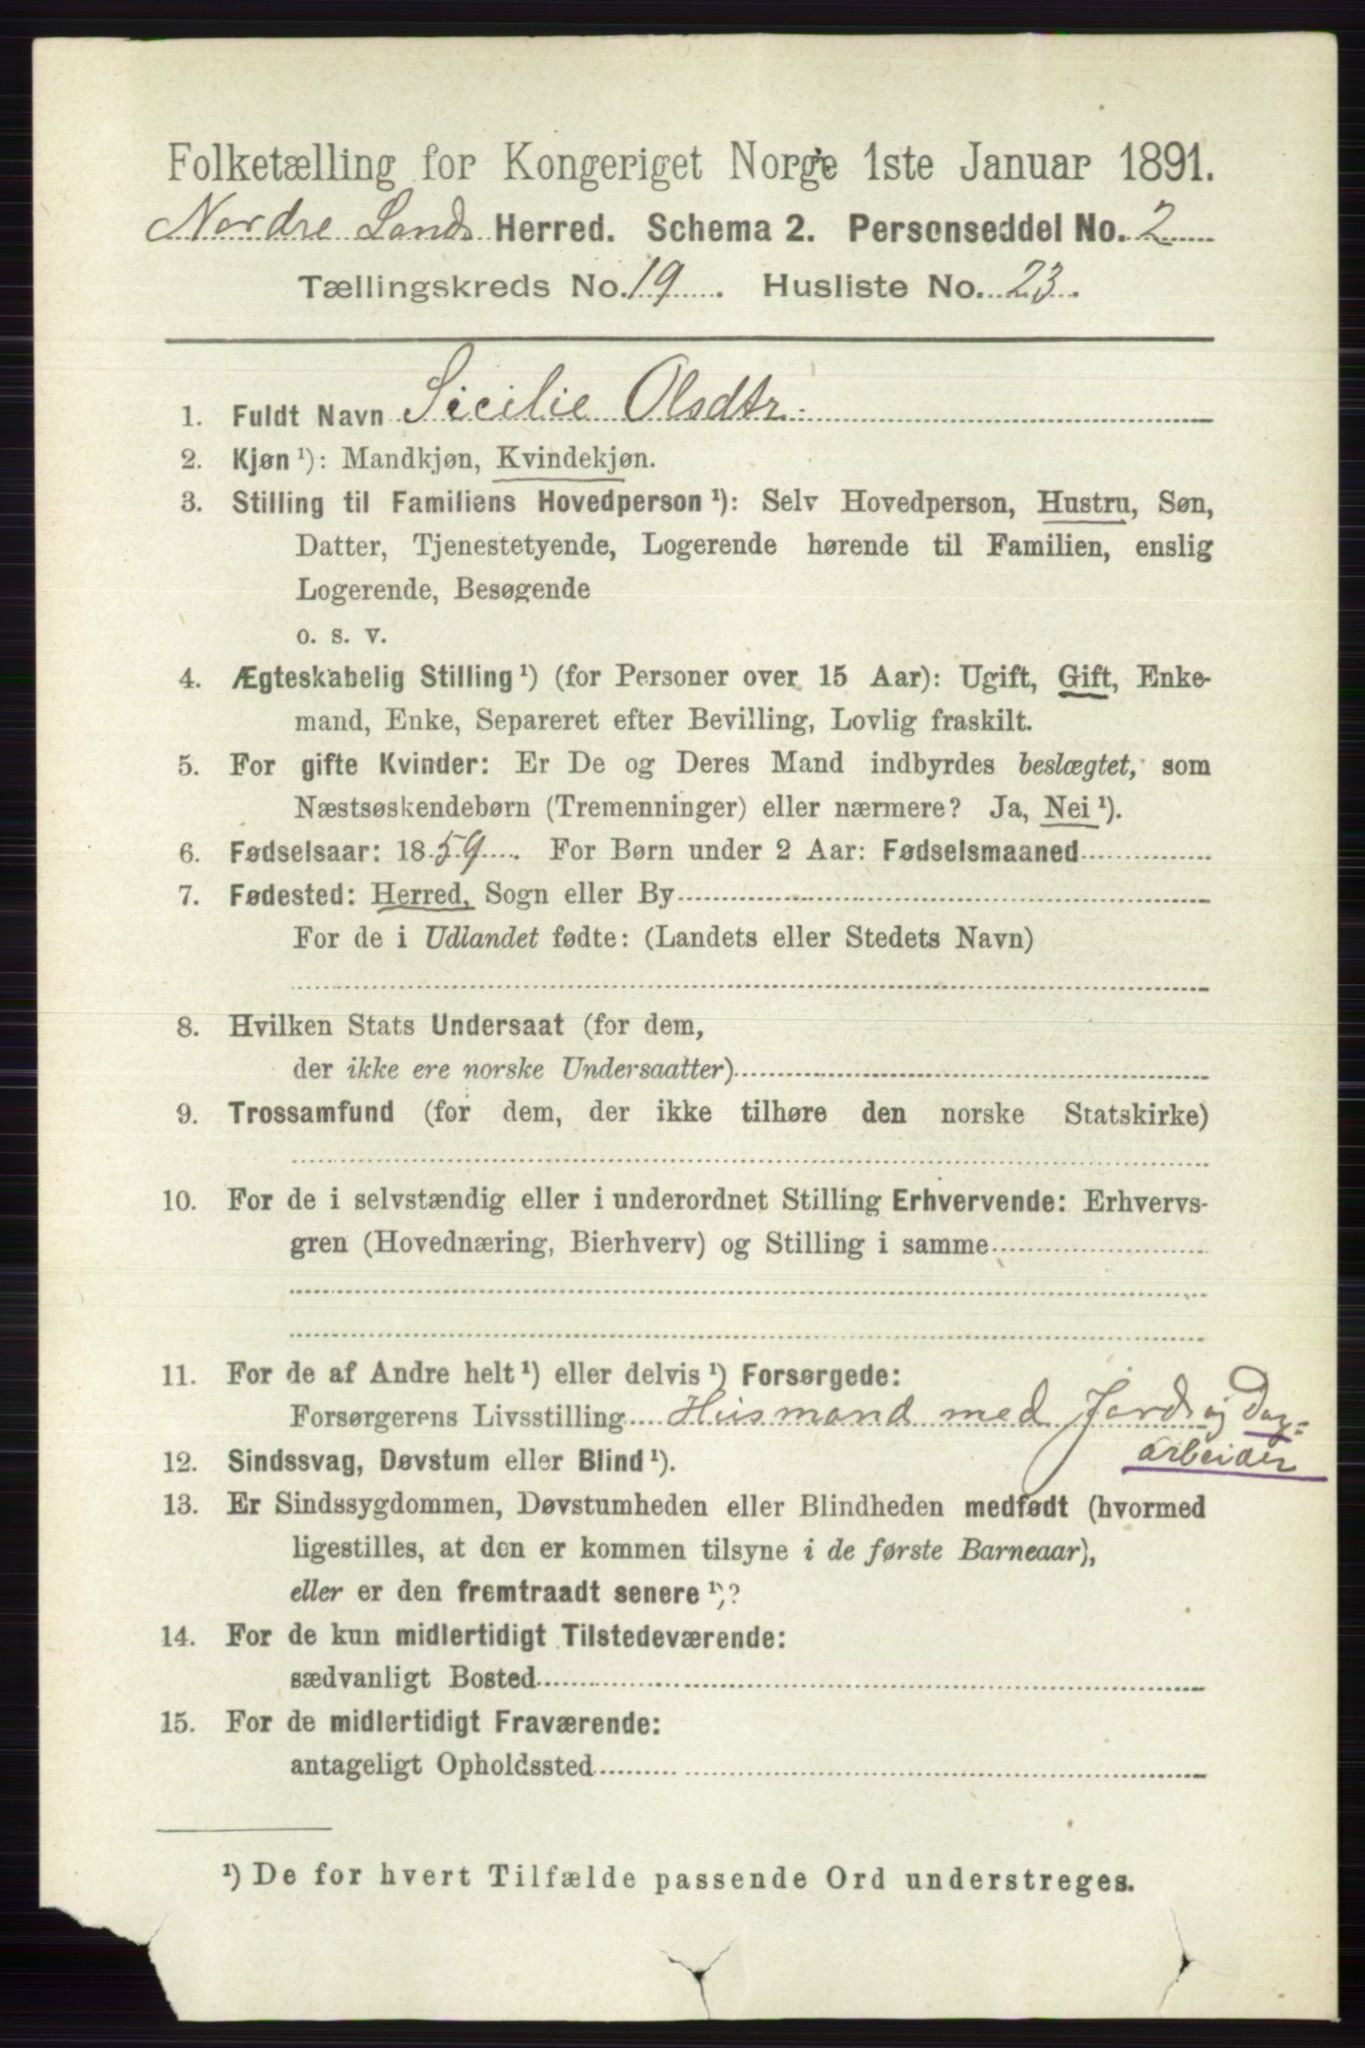 Folketælling for Kongeriget Norge 1ste Januar 1891.
Nordre Lands Herred. Schema 2. Personseddel No. 2
Tællingskreds No. 19. Husliste No. 23.
1. Fuldt Navn Sicilie Olsdtr.
2. Kjøn ¹): Mandkjøn, Kvindekjøn.
3. Stilling til Familiens Hovedperson ¹): Selv Hovedperson, Hustru, Søn,
Datter, Tjenestetyende, Logerende hørende til Familien, enslig
Logerende, Besøgende
o. s. v.
4. Ægteskabelig Stilling ¹) (for Personer over 15 Aar): Ugift, Gift, Enke-
mand, Enke, Separeret efter Bevilling, Lovlig fraskilt.
5. For gifte Kvinder: Er De og Deres Mand indbyrdes beslægtet, som
Næstsøskendebørn (Tremenninger) eller nærmere? Ja, Nei ¹).
6. Fødselsaar: 1859. For Børn under 2 Aar: Fødselsmaaned
7. Fødested: Herred, Sogn eller By
For de i Udlandet fødte: (Landets eller Stedets Navn)
8. Hvilken Stats Undersaat (for dem,
der ikke ere norske Undersaatter)
9. Trossamfund (for dem, der ikke tilhøre den norske Statskirke)
10. For de i selvstændig eller i underordnet Stilling Erhvervende: Erhvervs-
gren (Hovednæring, Bierhverv) og Stilling i samme
11. For de af Andre helt ¹) eller delvis ¹) Forsørgede:
Forsørgerens Livsstilling Husmand med Jord og Dag-
arbeider
12. Sindssvag, Døvstum eller Blind ¹).
13. Er Sindssygdommen, Døvstumheden eller Blindheden medfødt (hvormed
ligestilles, at den er kommen tilsyne i de første Barneaar),
eller er den fremtraadt senere ¹)?
14. For de kun midlertidigt Tilstedeværende:
sædvanligt Bosted
15. For de midlertidigt Fraværende:
antageligt Opholdssted
¹) De for hvert Tilfælde passende Ord understreges.